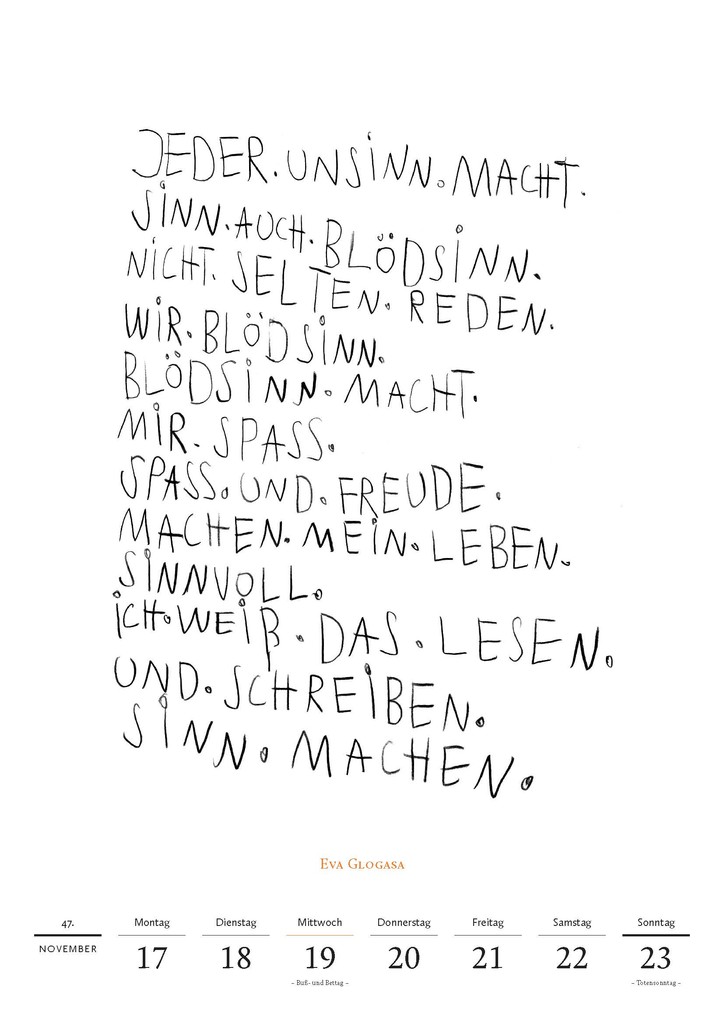 JEDER. UNSiNN. MACHT.
SiNN. AUCH. BLÖDSiNN.
NiCHT. SELTEN. REDEN.
WiR. BLÖDSiNN.
BLÖDSiNN. MACHT.
MiR. SPASS.
SPASS. UND. FREUDE.
MACHEN. MEiN. LEBEN.
SiNNVOLL.
iCH. WEiß. DAS. LESEN.
UND. SCHREiBEN.
SiNN. MACHEN.
Eva Glogasa
47. Montag Dienstag Mittwoch Donnerstag Freitag Samstag Sonntag
NOVEMBER 17 18 19 20 21 22 23
– Buß- und Bettag – – Totensonntag –